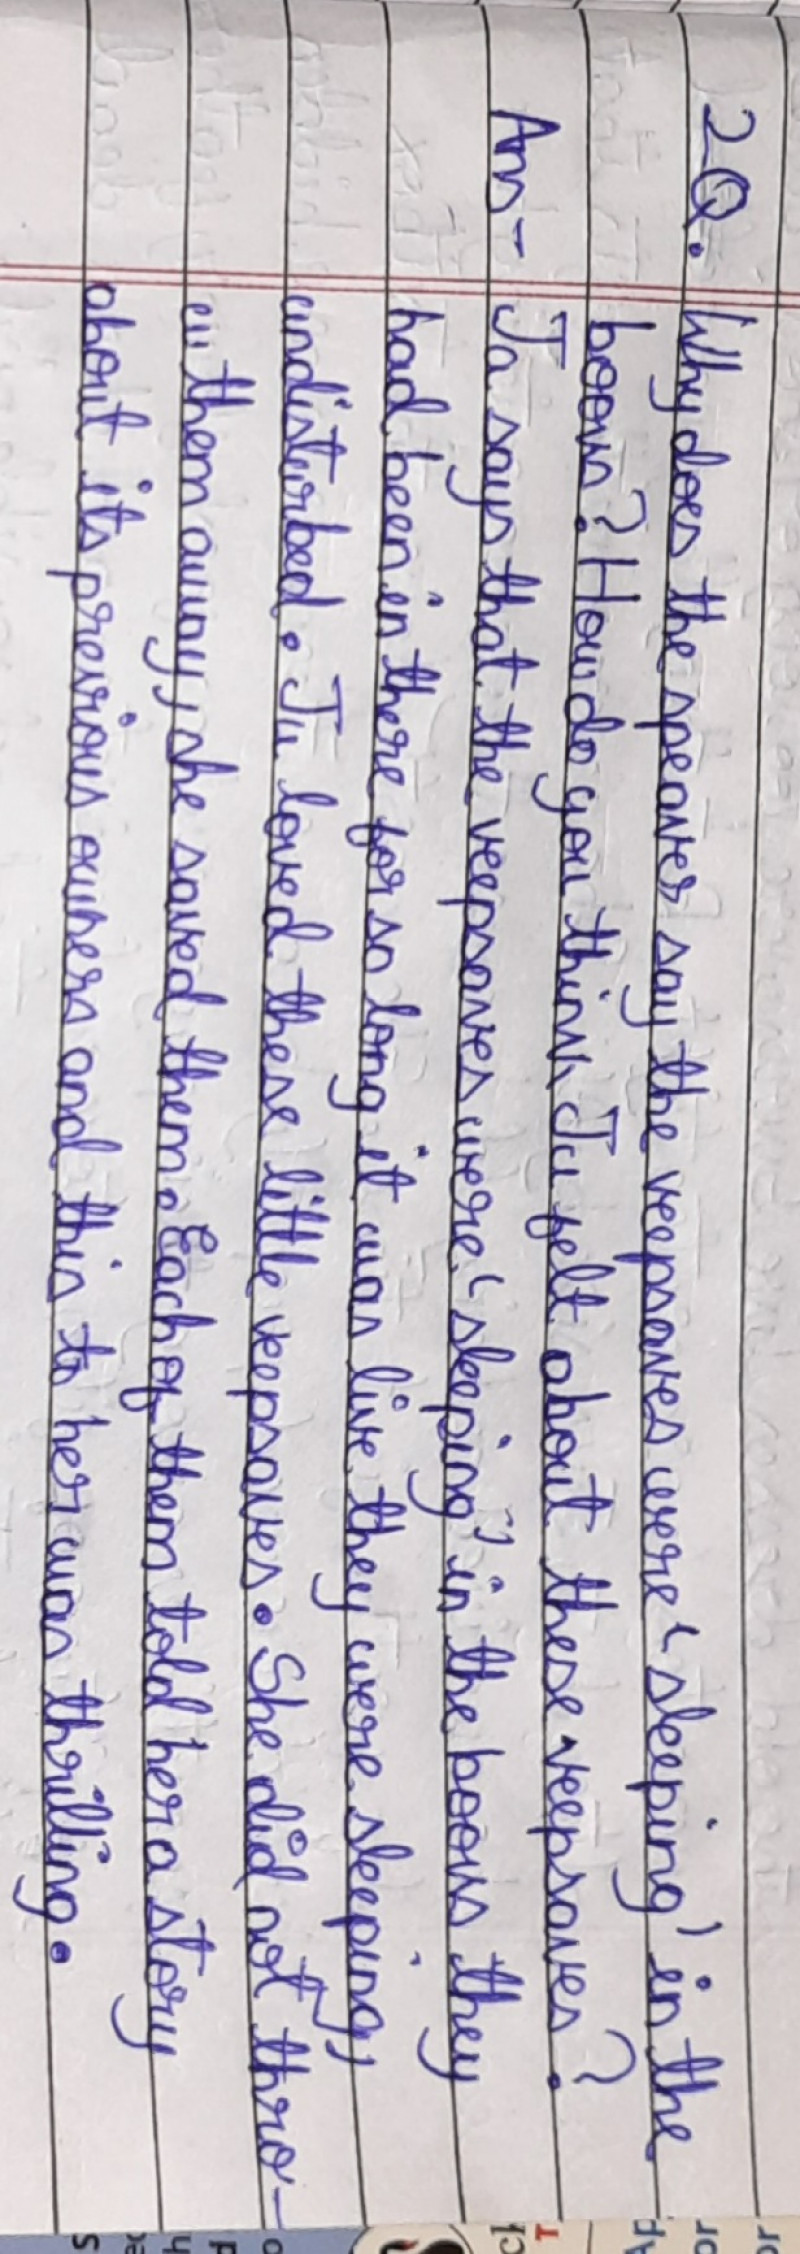 2Q. Why does the speaker say the keepsakes were 'sleeping' in the
books? How do you think Ju felt about these keepsakes?
Ans- Ju says that the keepsakes were 'sleeping' in the books they
had been in there for so long it was like they were sleeping,
undisturbed. Ju loved these little keepsakes. She did not thro-
w them away, she saved them. Each of them told her a story
about its previous owners and this to her was thrilling.